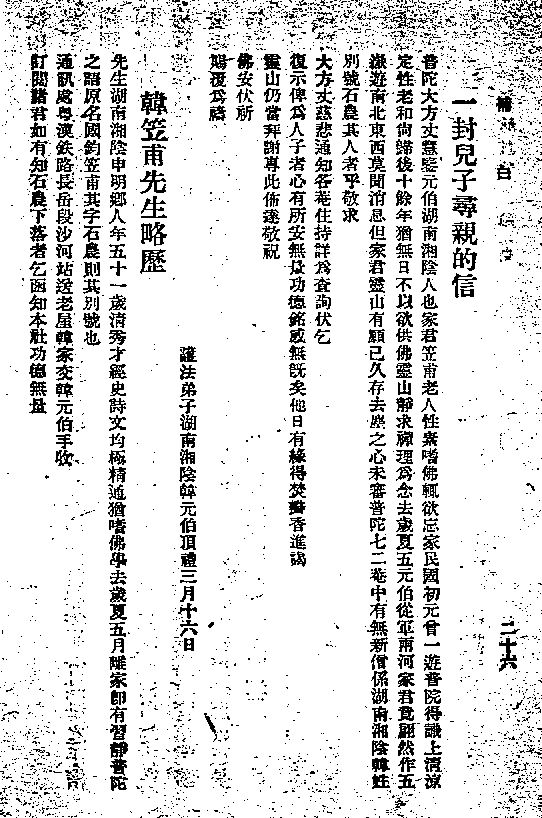 白
二十六
一封兒子尋親的信
普陀大方丈慧鑒元伯湖南湘陰人也家君笠甫老人性素嗜佛輒欲忘家民國初元曾一遊普院得識上清涼
定性老和尚歸後十餘年猶無日不以欲供佛靈山靜求禪理為念去歲夏五元伯從軍兩河家君竟翩然作五
嶽遊南北東西莫聞消息但家君靈山有願已久存去塵之心未審普陀七二菴中有無新僧係湖南湘陰韓姓
別號石農其人者乎敬求
大方丈慈悲通知各菴住持詳為查詢伏乞
復示俾為人子者心有所安無量功德銘感無旣矣他日有緣得焚瓣香進謁
靈山仍當拜謝專此佈達敬祝
佛安伏所
賜覆為禱
護法弟子湖南湘陰韓元伯頂禮三月十六日
韓笠甫先生略歷
先生湖南湘陰申明鄉人年五十一歲清秀才經史詩文均極精通猶嗜佛學去歲夏五月離家卽有習靜普陀
之語原名國鈞笠甫其字石農則其別號也
通訊處粵漢鉄路長岳段沙河站送老屋韓家交韓元伯手收
訂閱諸君如有知石農下落者乞函知本社功德無量